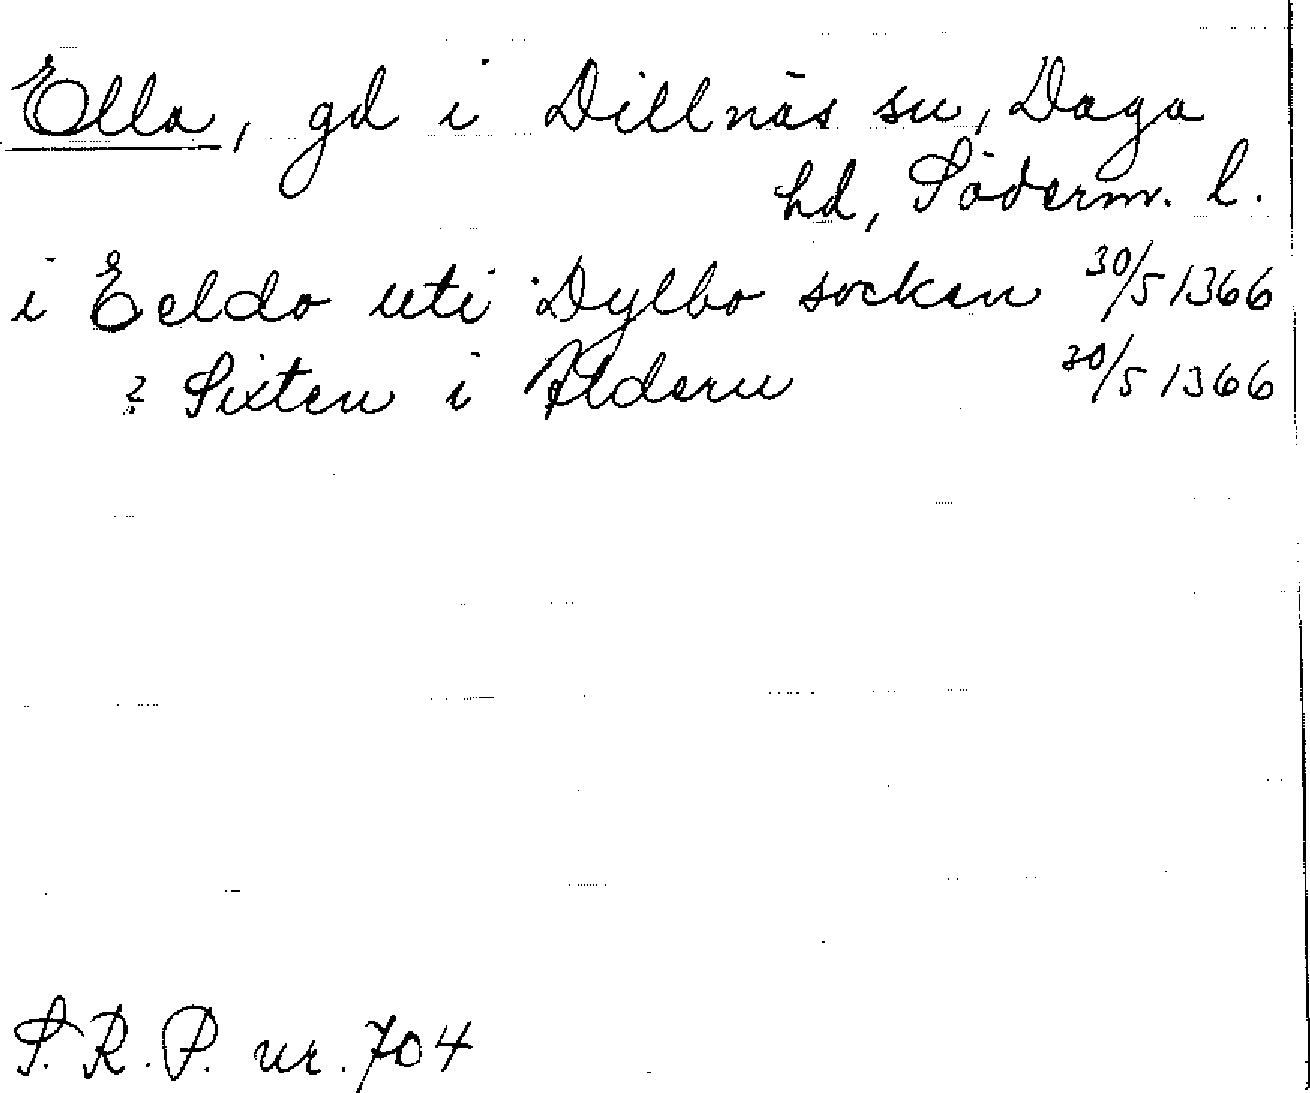 Ella, gd i Dillnäs sn, Daga
hd, Söderm. l.
i Eeldo uti Dylbo socken 30/5 1366
? Sixten i Ælderu 30/5 1366
S.R.P. nr. 704